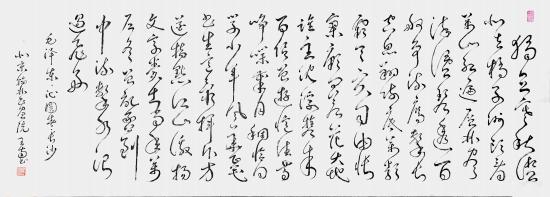 独立寒秋湘
江北去橘子洲头看
万山红遍层林尽
染漫江碧透百
舸争流鹰击长
空鱼翔浅底万类
霜天竞自由怅
寥廓问苍茫大地
谁主沉浮携来
百侣曾游忆往昔
峥嵘岁月稠恰同
学少年风华正茂
书生意气挥斥方
遒指点江山激扬
文字粪土当年万
户侯曾记否到
中流击水浪
遏飞舟
毛泽东沁园春长沙
北京书画院